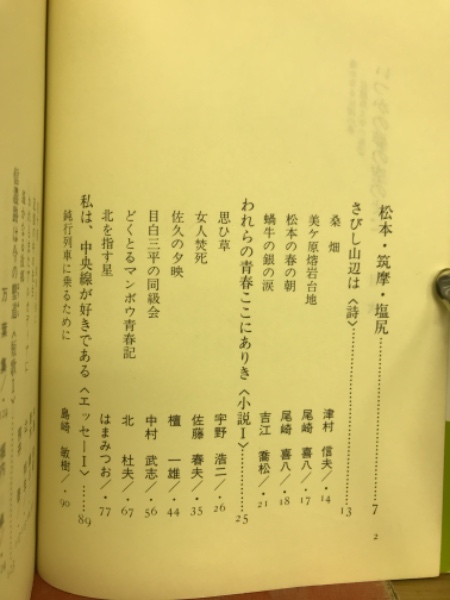 松本・筑摩・塩尻 7
さびし山辺は〈詩〉……13
桑畑 津村 信夫／・14
美ケ原熔岩台地 尾崎 喜八／・17
松本の春の朝 尾崎 喜八／・18
蝸牛の銀の涙 吉江 喬松／・21
われらの青春ここにありき〈小説Ⅰ〉……25
思ひ草 宇野 浩二／・26
女人焚死 佐藤 春夫／・35
佐久の夕映 檀 一雄／・44
目白三平の同級会 中村 武志／・56
どくとるマンボウ青春記 北 杜夫／・67
北を指す星 はまみつお／・77
私は、中央線が好きである〈エッセーⅠ〉……89
鈍行列車に乗るために 島崎 敏樹／・90
2